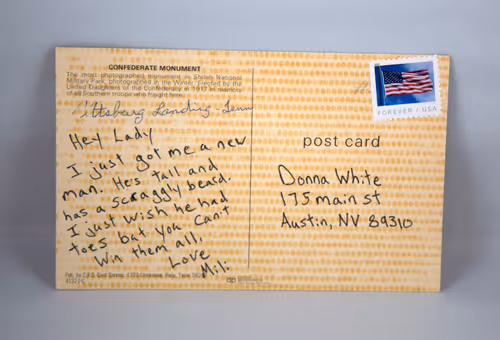 CONFEDERATE MONUMENT
The most photographed monument in Shiloh National
Military Park, photographed in the Winter. Erected by the
United Daughters of the Confederacy in 1917 in memory
of all Southern troops who fought here.
Pittsburg Landing - Tenn
Hey Lady
I just got me a new
man. He's tall and
has a scraggly beard.
I just wish he had
toes but you can't
win them all.
Love
Mili
FOREVER / USA
post card
Donna White
175 main st
Austin, NV 89310